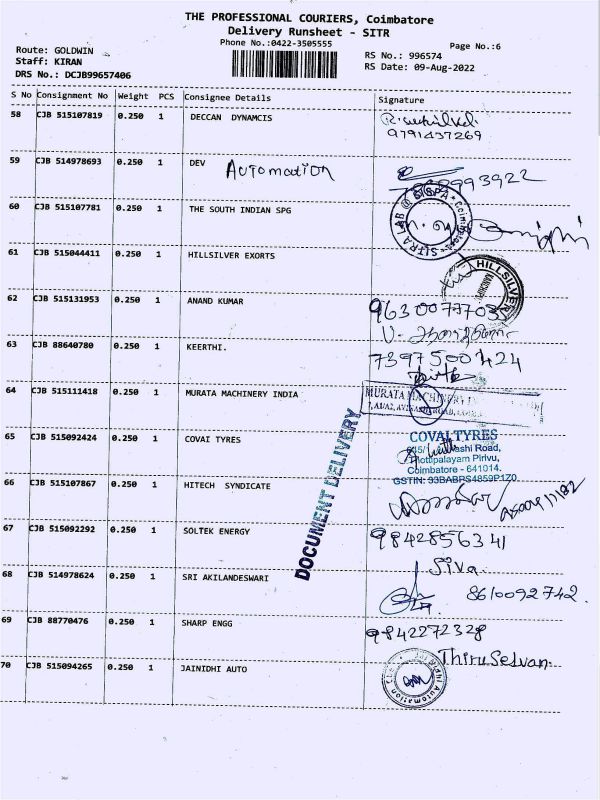 THE PROFESSIONAL COURIERS, Coimbatore
Delivery Runsheet - SITR
Phone No.:0422-3505555
Page No.:6
Route: GOLDWIN
Staff: KIRAN
DRS No.: DCJB99657406
RS No.: 996574
RS Date: 09-Aug-2022
S No Consignment No Weight PCS Consignee Details Signature
58 CJB 515107819 0.250 1 DECCAN DYNAMCIS
9791437269
59 CJB 514978693 0.250 1 DEV Automation
60 CJB 515107781 0.250 1 THE SOUTH INDIAN SPG
SITRA LAB @ SISPA * Coimbatore *
61 CJB 515044411 0.250 1 HILLSILVER EXORTS
HILLSILVER
62 CJB 515131953 0.250 1 ANAND KUMAR
63 CJB 88640780 0.250 1 KEERTHI.
64 CJB 515111418 0.250 1 MURATA MACHINERY INDIA
MURATA MACHINERY
65 CJB 515092424 0.250 1 COVAI TYRES
COVAI TYRES
Road,
Pirivu,
Coimbatore - 641014.
GSTIN: 33BABRS4859P1Z0
66 CJB 515107867 0.250 1 HITECH SYNDICATE
DOCUMENT DELIVERY
67 CJB 515092292 0.250 1 SOLTEK ENERGY
9842856341
Siva.
68 CJB 514978624 0.250 1 SRI AKILANDESWARI
8610092742.
69 CJB 88770476 0.250 1 SHARP ENGG
9842272328
ThiruSelvan
70 CJB 515094265 0.250 1 JAINIDHI AUTO